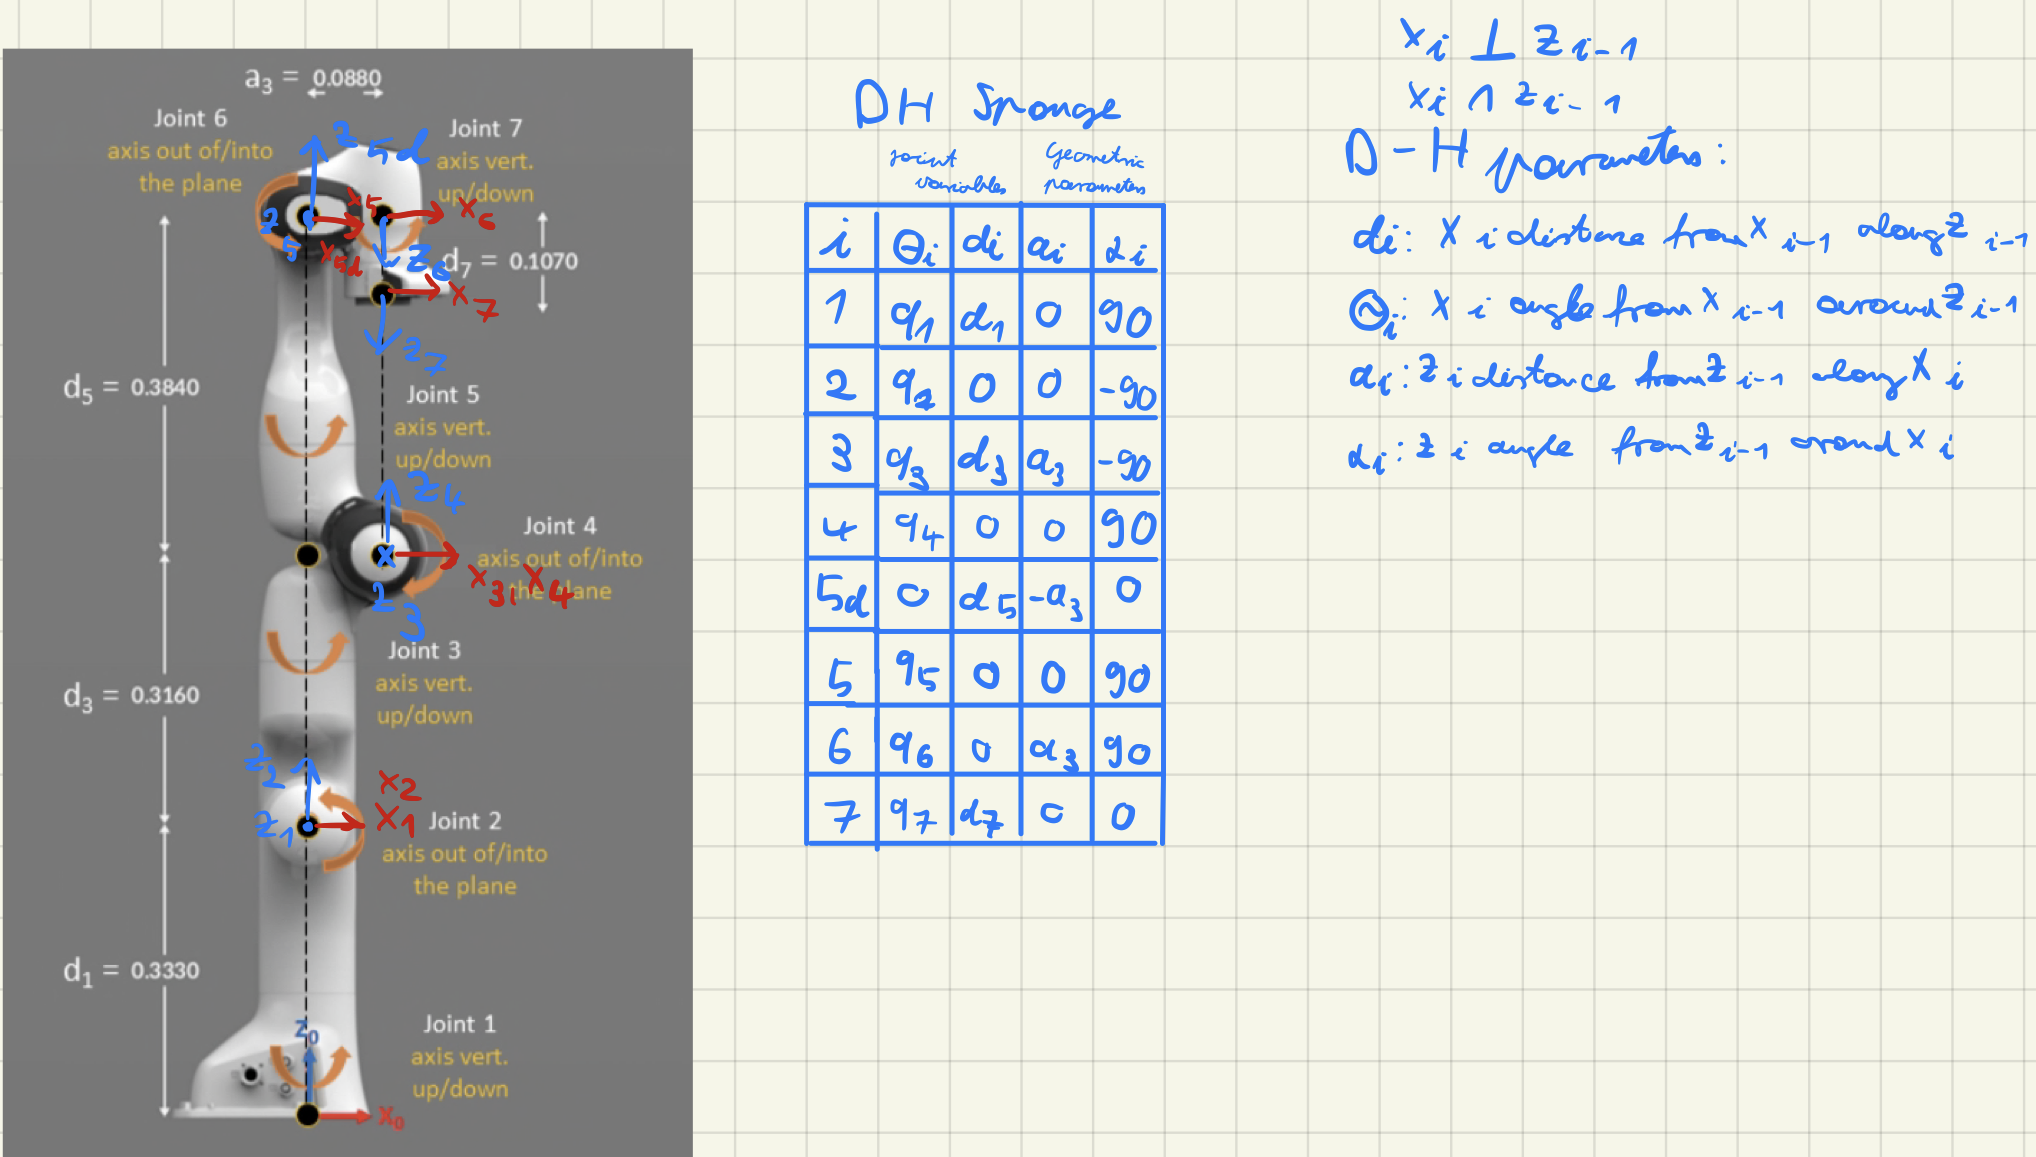 a₃ = 0.0880
Joint 6
axis out of/into
the plane
z 5d
Joint 7
axis vert.
up/down
z 5
x5
x5d
x6
z6
d₇ = 0.1070
x7
z7
d₅ = 0.3840
Joint 5
axis vert.
up/down
z4
Joint 4
axis out of/into
the plane
x3, x4
z3
Joint 3
axis vert.
up/down
d₃ = 0.3160
z2
x2
z1
x1
Joint 2
axis out of/into
the plane
d₁ = 0.3330
z0
Joint 1
axis vert.
up/down
x0
DH Sponge
joint variables
Geometric parameters
i θi di ai αi
1 q1 d1 0 90
2 q2 0 0 -90
3 q3 d3 a3 -90
4 q4 0 0 90
5d 0 d5 -a3 0
5 q5 0 0 90
6 q6 0 a3 90
7 q7 d7 0 0
xi ⊥ zi-1
xi ∩ zi-1
D-H parameters:
di: x i distance from x i-1 along z i-1
θi: x i angle from x i-1 around z i-1
ai: z i distance from z i-1 along x i
αi: z i angle from z i-1 arond x i